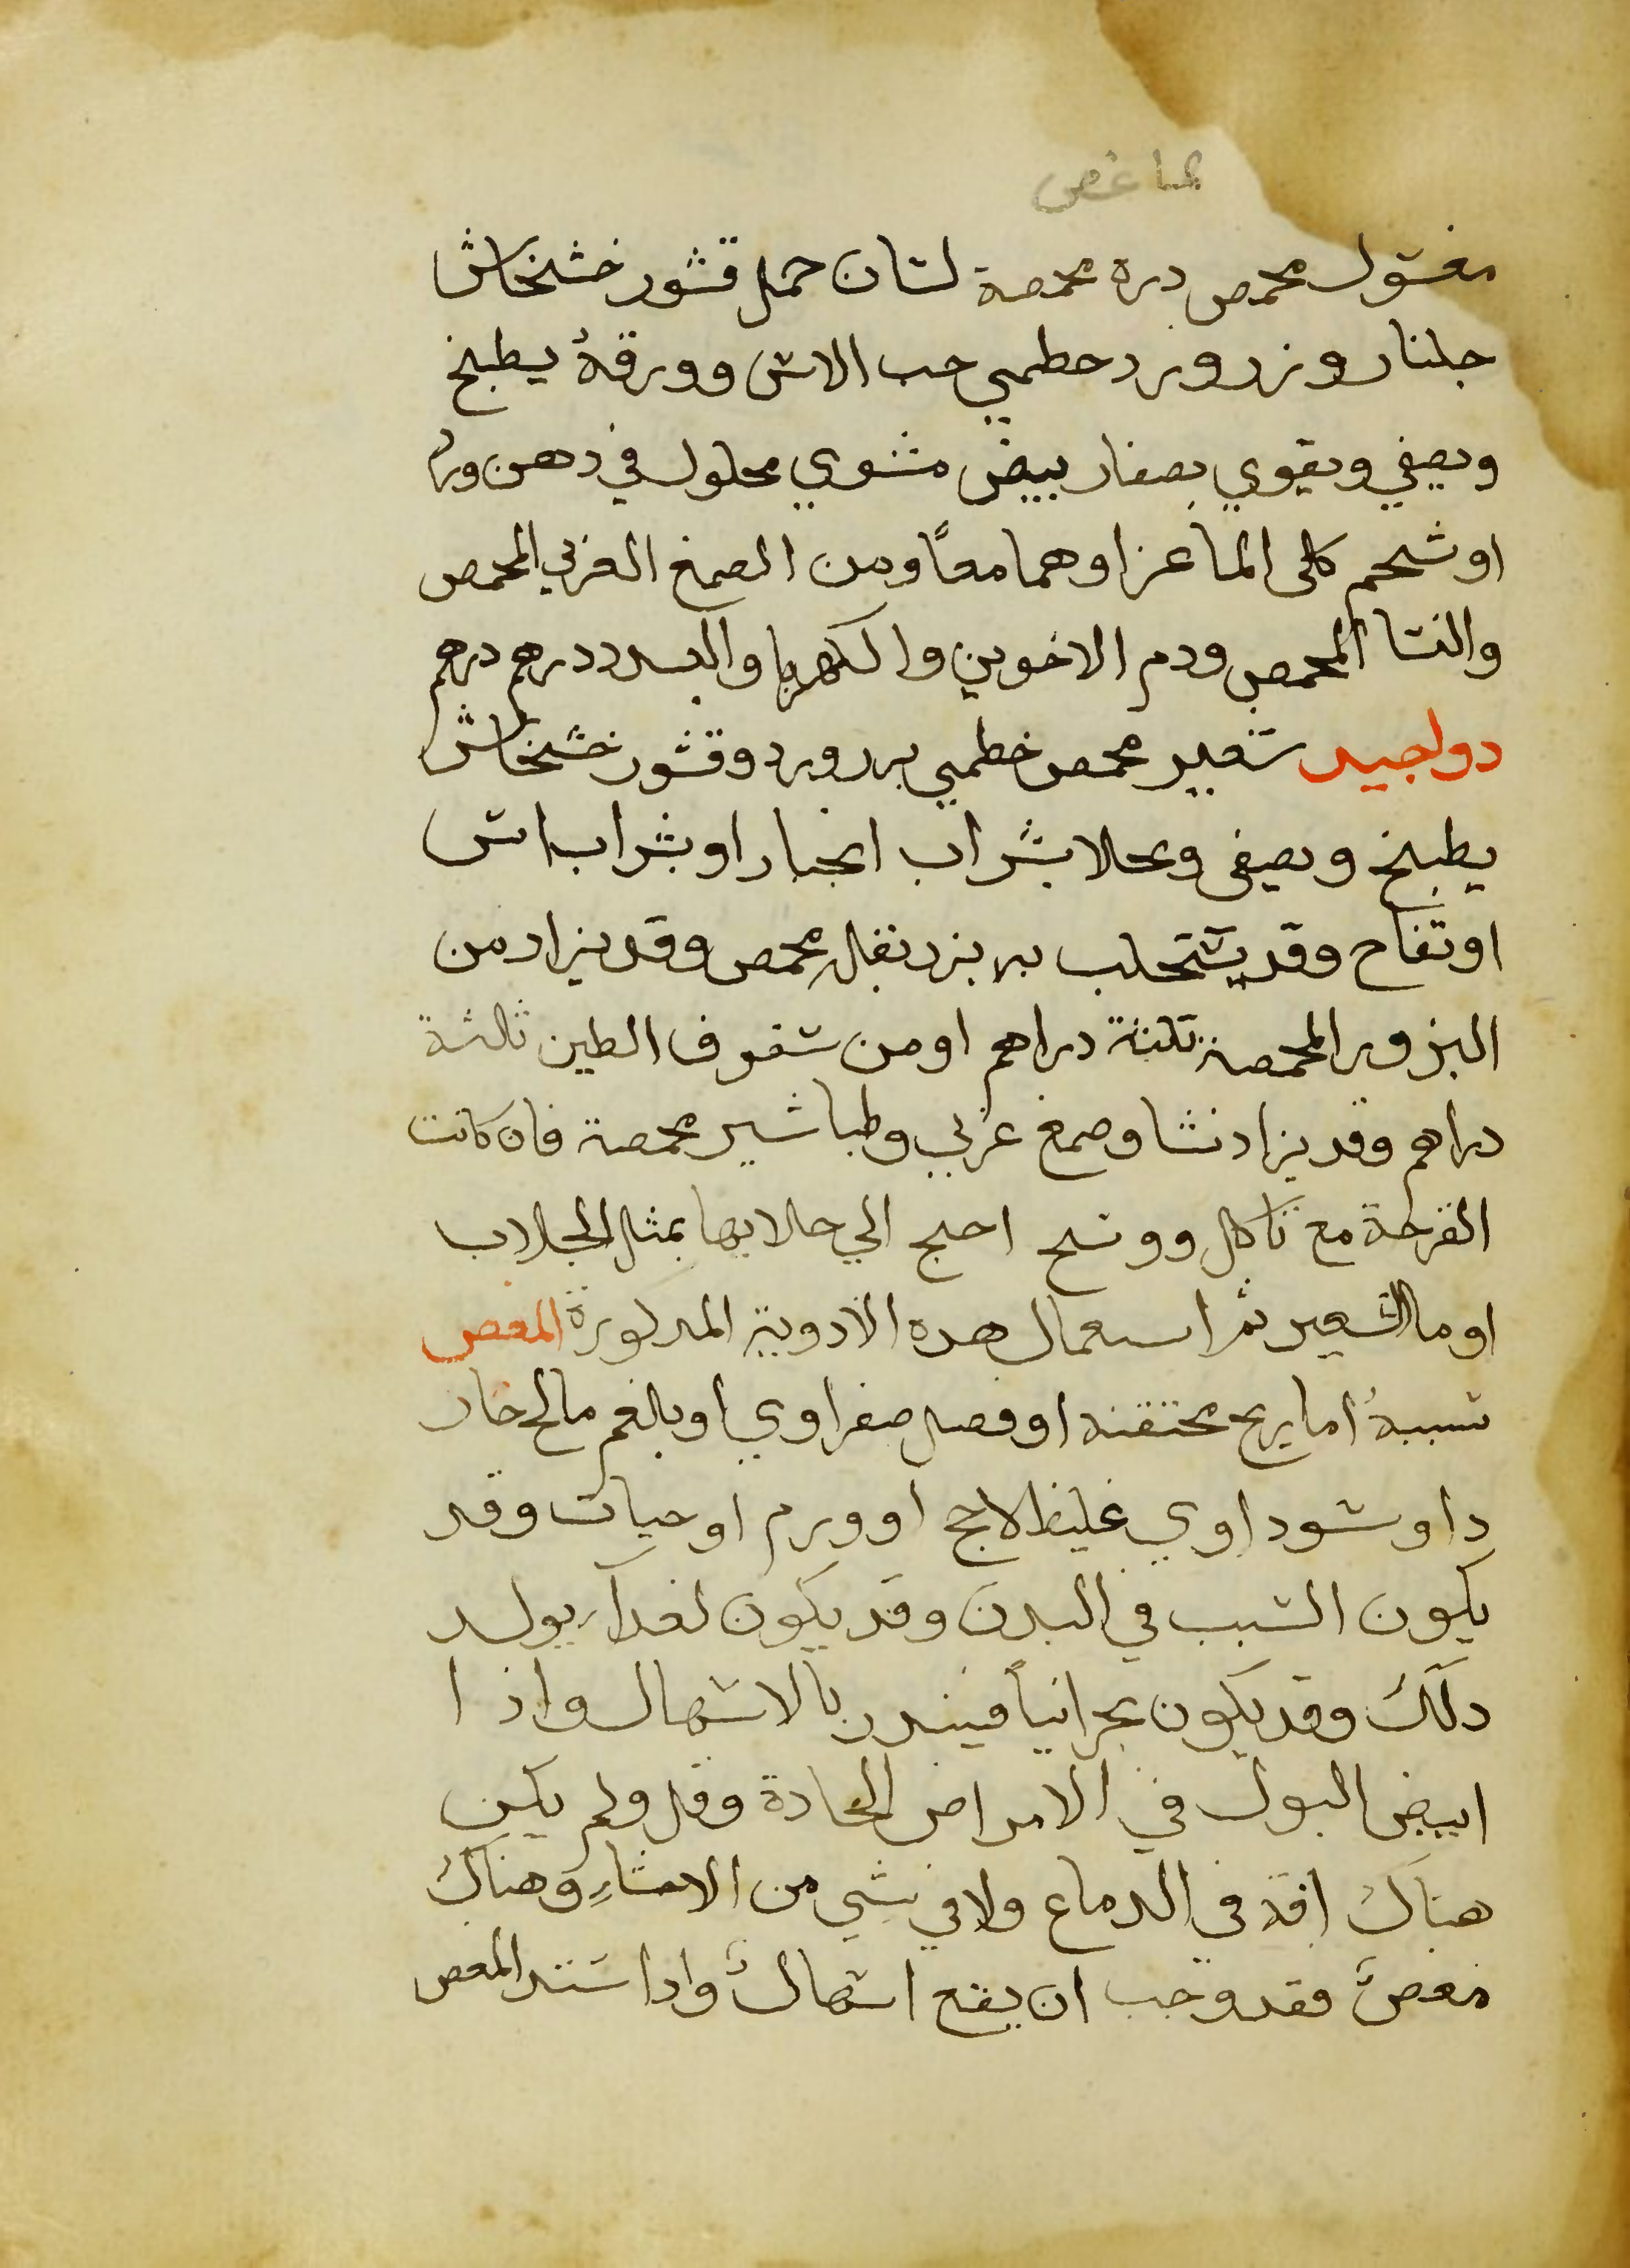 مغسول محمص دره محمصة لسان حمل قشور خشخاش
جلنار وزر ورد خطمي حب الاس وورقهُ يطبخ
ويصفي ويقوي بصفار بيض مشوي محلول في دهن ورد
او شحم كلى الماعز او هما معًا ومن الصمغ العربي المحمص
والنشا المحمص ودم الاخوين والكهربا والبسد درهم درهم
دوا جيد شعير محمص خطمي بزر ورد وقشور خشخاش
يطبخ ويصفى ويحلا بشراب انجبار او بشراب اس
او تفاح وقد يستحلب به بزر بقلة محمص وقد يزاد من
البزور المحمصة ثلثة دراهم او من سفوف الطين ثلثة
دراهم وقد يزاد نشا وصمغ عربي وطباشير محمصة فان كانت
القرحة مع تاكل ووسخ احتج الي جلايها بمثل الجلاب
او ما الشعير ثم استعمال هده الادوية المدكورة المغص
سببهُ اما ريح محتقنه او فضل صفراوي او بلغم مالح حاد
دا وسوداوي غليظ لاحج او ورم او حيات وقد
يكون السبب في البدن وقد يكون لغدآء يولد
دلك وقد يكون بحرانياً فيندر بالاسهال واذا
ابيض البول في الامراض الحادة وقل ولم يكن
هناك افة في الدماغ ولا في شي من الاحشاءِ وهناك
مغصٌ فقد وجب ان يقع اسهالٌ وادا اشتد المغص